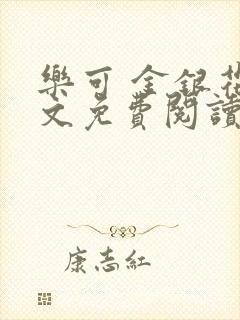 樂可 金銀花
文免費閱讀
康志紅